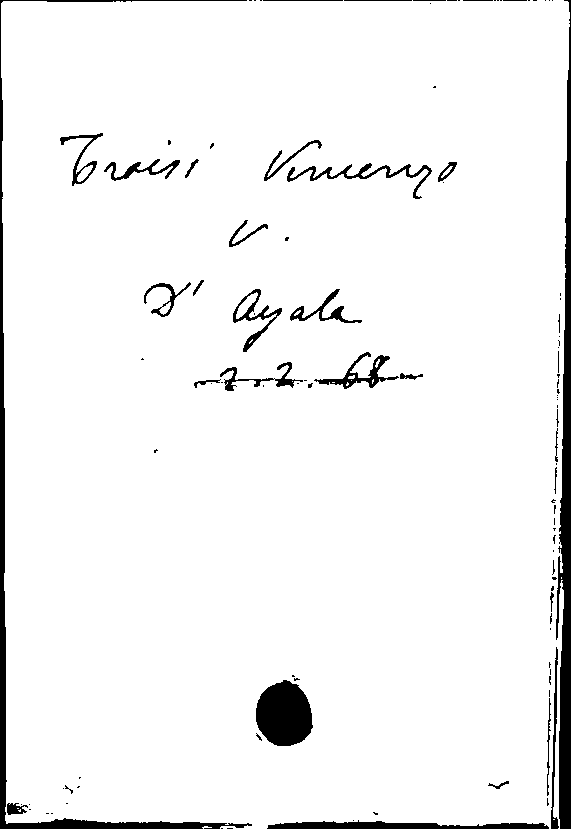 Troisi Vincenzo
V.
D' Ayala
2.2.68